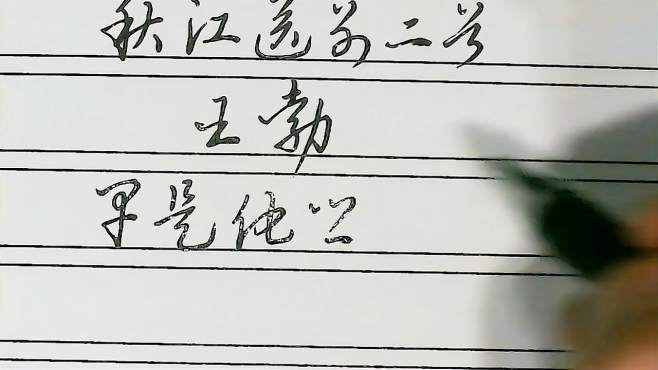 秋江送别二首
王勃
早是他乡